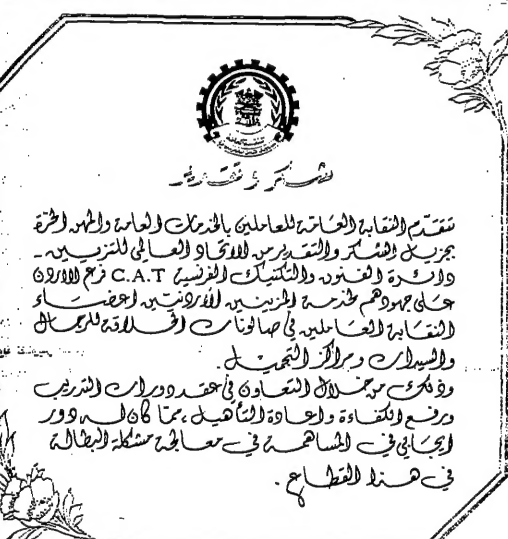 شكر و تقدير
تتقدم النقابة العامة للعاملين بالخدمات العامة والمهن الحرة
بجزيل الشكر والتقدير من الاتحاد العالمي للتزيين -
دائرة الفنون والتكنيك الفرنسية C.A.T فرع الاردن
على جهودهم لخدمة المزينين الأردنيين اعضاء
النقابة العاملين في صالونات الحلاقة للرجال
والسيدات ومراكز التجميل.
وذلك من خلال التعاون في عقد دورات التدريب
ورفع الكفاءة واعادة التأهيل، مما كان له دور
ايجابي في المساهمة في معالجة مشكلة البطالة
في هذا القطاع.